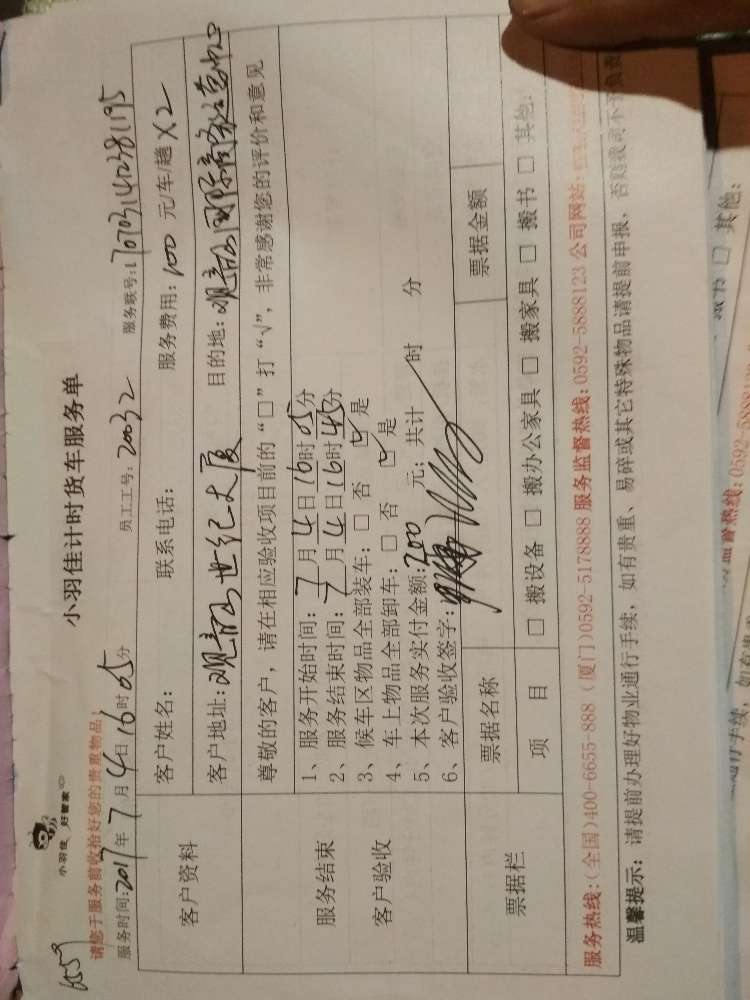 6059
小羽佳 好管家
小羽佳计时货车服务单
请您于服务前收拾好您的贵重物品!
服务时间:2017年7月4日16时05分 员工工号:20032 服务联号:170703141238195
客户资料
客户姓名: 联系电话: 服务费用:100 元/车/趟 X2
客户地址:观音山世纪大厦 目的地:观音山国际商务运营中心
服务结束
客户验收
尊敬的客户，请在相应验收项目前的“□”打“√”，非常感谢您的评价和意见
1、服务开始时间:7月4日16时05分
2、服务结束时间:7月4日16时45分
3、候车区物品全部装车:□ 否 ☑ 是
4、车上物品全部卸车:□ 否 ☑ 是
5、本次服务实付金额:200 元; 共计 时 分
6、客户验收签字:
票据栏
票据名称 票据金额
项 目 □ 搬设备 □ 搬办公家具 □ 搬家具 □ 搬书 □ 其他:
服务热线:(全国)400-6655-888 (厦门)0592-5178888 服务监督热线:0592-5888123 公司网站:
温馨提示: 请提前办理好物业通行手续，如有贵重、易碎或其它特殊物品请提前申报，否则我司不予负责
书 □ 其他:
监督热线:0592-5888
通行手续，如有贵